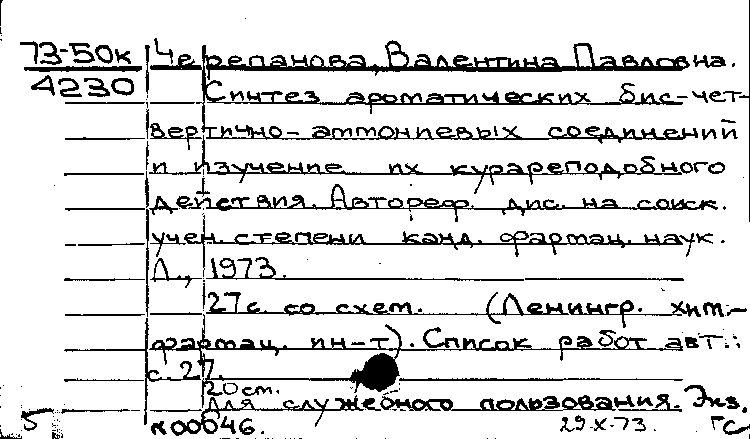 73-50к
4230
Черепанова, Валентина Павловна.
Синтез ароматических бис-чет-
вертично-аммониевых соединений
и изучение их курареподобного
действия. Автореф. дис. на соиск.
учен. степени канд. фармац. наук.
Л., 1973.
27 с. со схем. (Ленингр. хим.-
фармац. ин-т). Список работ авт.:
с. 27.
20 см.
Для служебного пользования. Экз.
№00046.
29.X.73. ГС
5